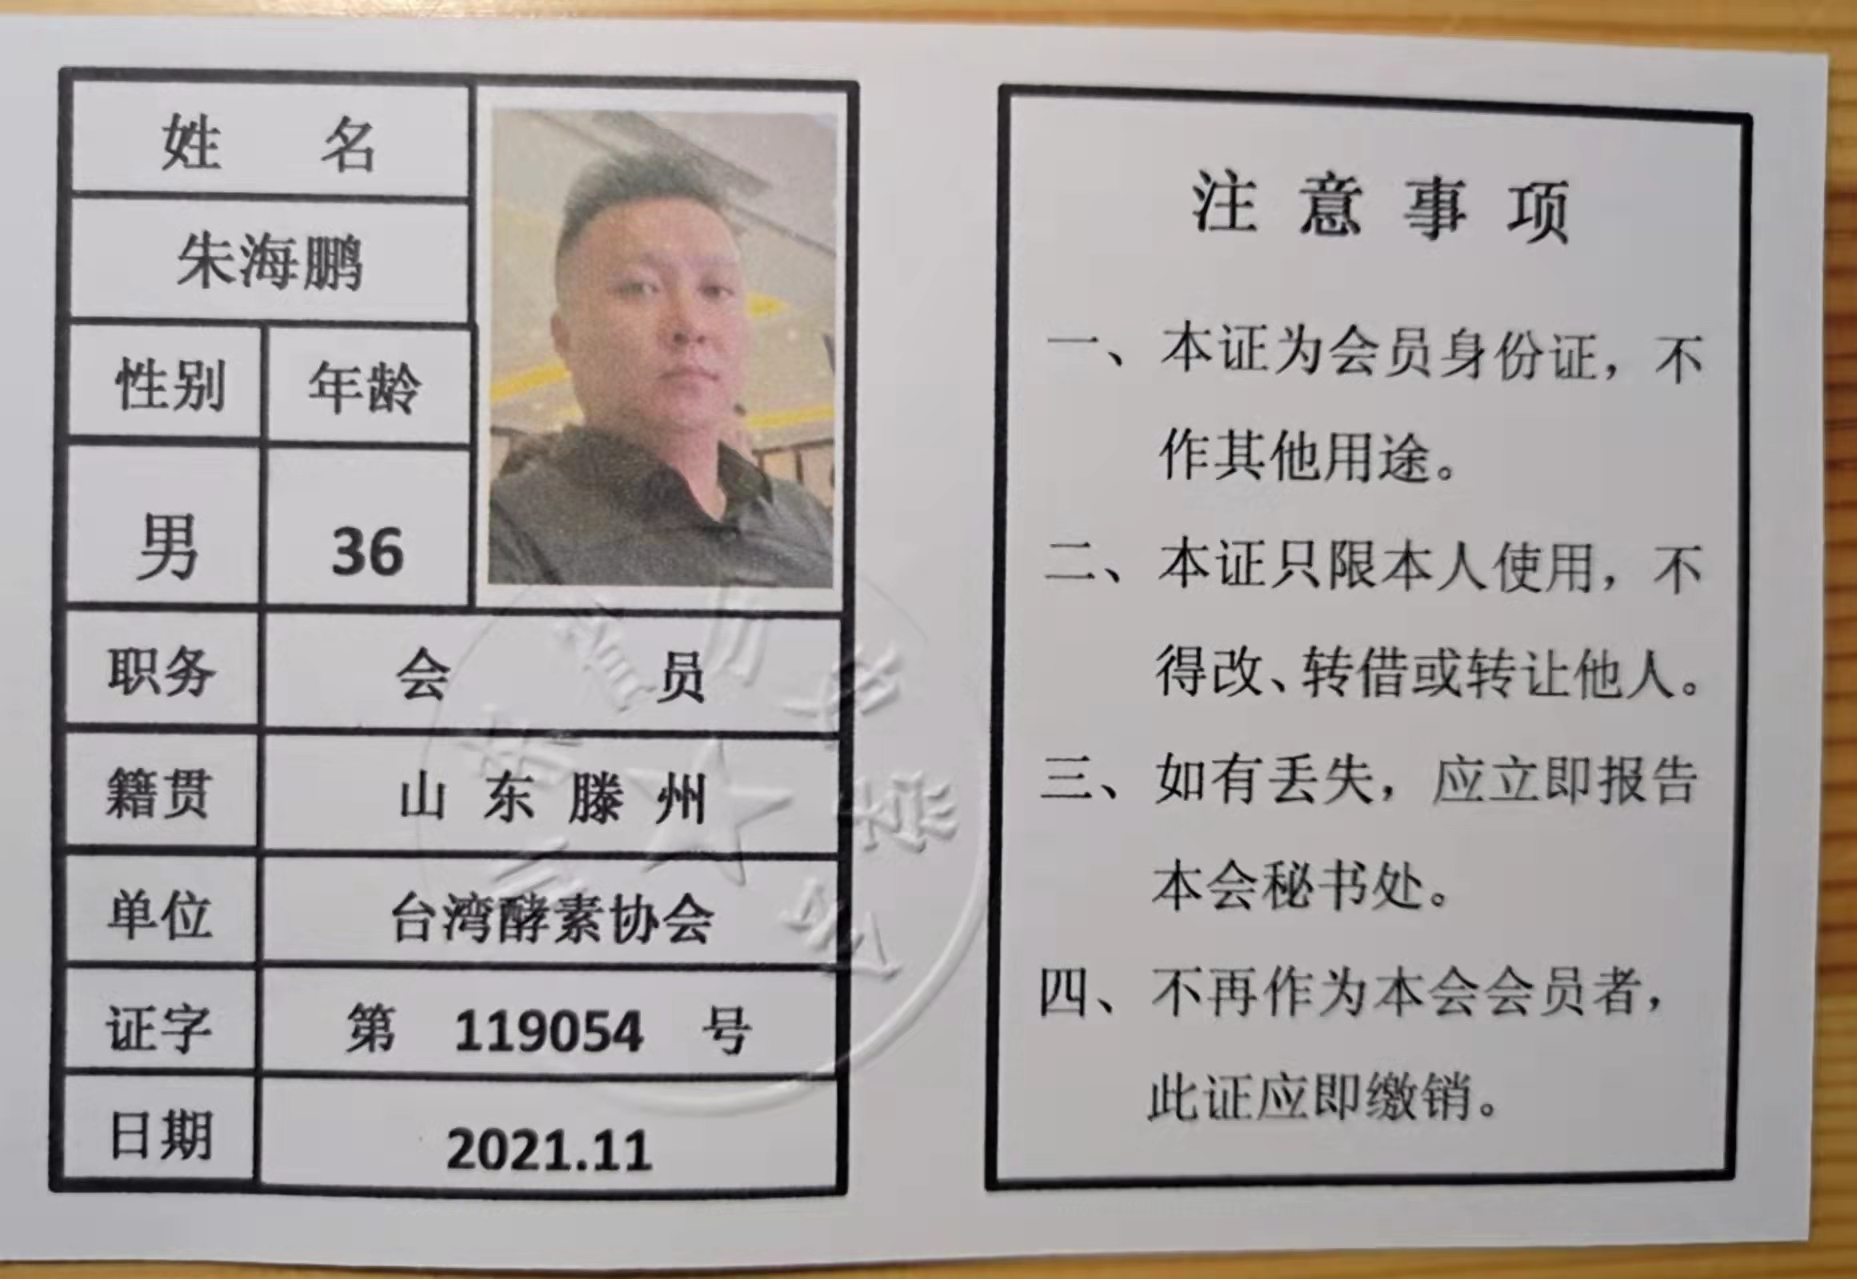 姓 名
朱海鹏
性别 年龄
男 36
职务 会 员
籍贯 山东滕州
单位 台湾酵素协会
证字 第 119054 号
日期 2021.11
注意事项
一、本证为会员身份证，不
作其他用途。
二、本证只限本人使用，不
得改、转借或转让他人。
三、如有丢失，应立即报告
本会秘书处。
四、不再作为本会会员者，
此证应即缴销。